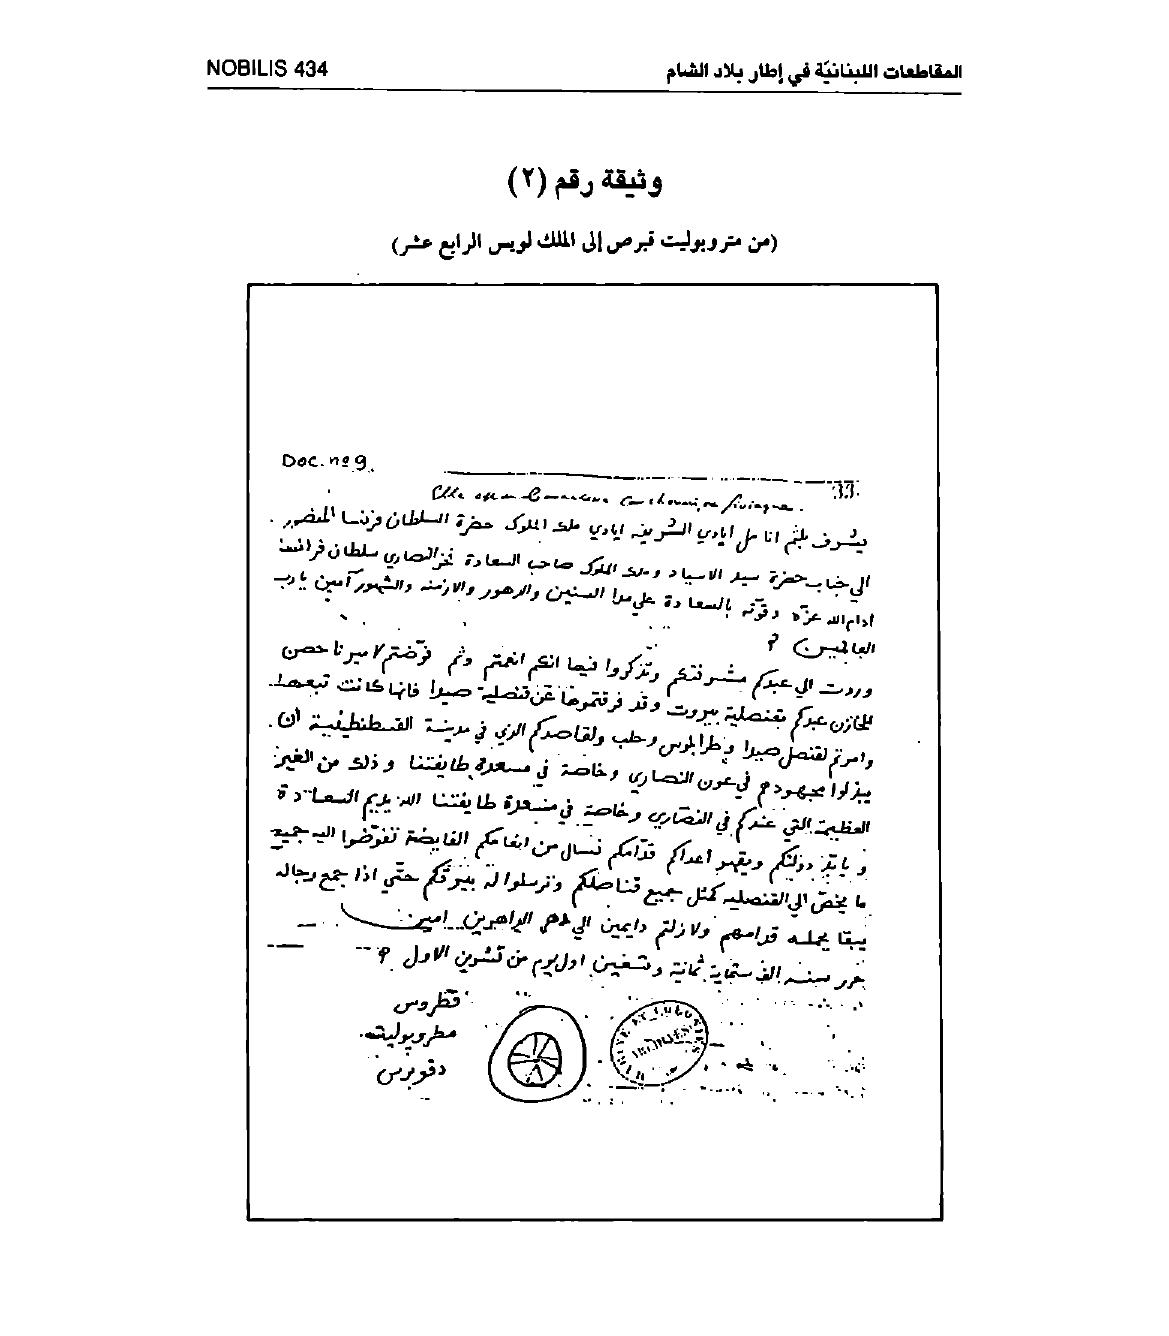 المقاطعات اللبنانيّة في إطار بلاد الشام
NOBILIS 434
وثيقة رقم (٢)
(من متروبوليت قبرص إلى الملك لويس الرابع عشر)
Doc. nº 9.
33
يتشرف بلثم انامل أيادي الشريفه ايادي ملك الملوك حضرة السلطان فرنسا المنصور .
الي جناب حضرة سيد الاسياد وملك الملوك صاحب السعادة فخر النصاري سلطان فرانسا
ادام الله عزّه وقوّته بالسعادة علي مدا السنين والدهور والازمنه والشهور آمين يا رب
العالمين
وردت الي عبدكم مشرفتكم وتذكروا فيها انكم انعمتم وثم فوّضتم لاميرنا حصن
الخازن عبدكم بقنصلية بيروت وقد فرقتموها عن قنصلية صيدا فانها كانت تبعها
وامرتم لقنصل صيدا وطرابلوس وحلب ولقاصدكم الذي في مدينة القسطنطينية أن .
يبذلوا مجهودهم في عون النصاري وخاصة في مسعدة طايفتنا وذلك من الغيرة
العظيمة التي عندكم في النصاري وخاصة في مسعدة طايفتنا الله يديم السعادة
و يايّد دولتكم ويقهر أعداكم قدّامكم نسال من انعامكم الفايضة تفوّضوا اليه جميع
ما يخصّ الي القنصليه كمثل جميع قناصلكم وترسلوا له بيرقكم حتّي اذا جمع رجاله
يبقا يحمله قدامهم ولا زلتم دايمين الي دهر الداهرين امين
حرر سنه الف ستماية ثمانة وتسعين اول يوم من تشرين الاول
مطروبوليت